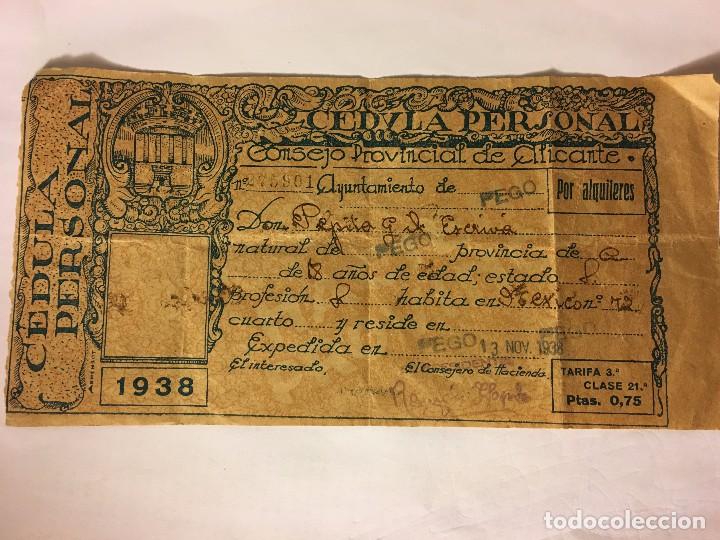 CÉDULA PERSONAL
CEDVLA PERSONAL
Consejo Provincial de Alicante.
nº 275901 Ayuntamiento de PEGO
Por alquileres
Don Pepita Escrivá
natural de PEGO provincia de A
de 18 años de edad, estado S.
profesión S habita en México nº 72
cuarto y reside en PEGO
Expedida en PEGO 13 NOV. 1938
El interesado, El Consejero de Hacienda,
1938
TARIFA 3.ª
CLASE 21.ª
Ptas. 0,75
todocoleccion
todocoleccion.net